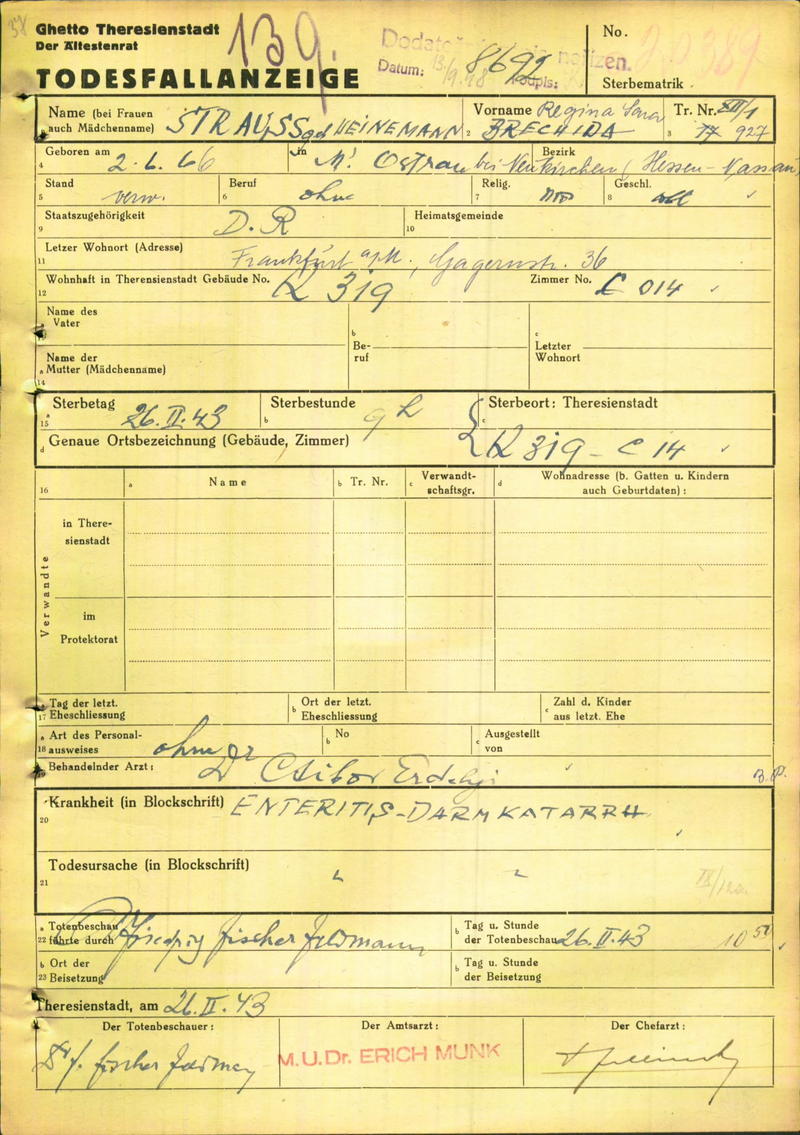 Ghetto Theresienstadt
Der Ältestenrat
TODESFALLANZEIGE
139.
Datum: 13/9.48
8692
No.
20389
Sterbematrik
Name (bei Frauen auch Mädchenname) STRAUSS gd HEINEMANN
2 Vorname Regina Sara BRECHIDA
3 Tr. Nr. XII/1 927
4 Geboren am 2.6.66 in M! Ostrau bei Neukirchen (Hessen-Nassau) Bezirk
5 Stand verw. 6 Beruf ohne 7 Relig. 8 Geschl.
9 Staatszugehörigkeit D.R 10 Heimatsgemeinde
11 Letzer Wohnort (Adresse) Frankfurt a/M., Gagernstr. 36
12 Wohnhaft in Theresienstadt Gebäude No. K 319 Zimmer No. C 014
Name des
a Vater
b Beruf
c Letzter Wohnort
Name der
a Mutter (Mädchenname)
14
15 a Sterbetag 26.II.43 b Sterbestunde 9 h c Sterbeort: Theresienstadt
d Genaue Ortsbezeichnung (Gebäude, Zimmer) K 319 - C 14
16 a Name b Tr. Nr. c Verwandtschaftsgr. d Wohnadresse (b. Gatten u. Kindern auch Geburtdaten):
Verwandte
in Theresienstadt
im Protektorat
17 a Tag der letzt. Eheschliessung b Ort der letzt. Eheschliessung c Zahl d. Kinder aus letzt. Ehe
18 a Art des Personalausweises ohne b No c Ausgestellt von
Behandelnder Arzt: Dr Ctibor Erdelyi
20 Krankheit (in Blockschrift) ENTERITIS-DARMKATARRH
21 Todesursache (in Blockschrift) " "
22 a Totenbeschau führte durch Fischer Feldmann b Tag u. Stunde der Totenbeschau 26.II.43 10 50
23 b Ort der Beisetzung b Tag u. Stunde der Beisetzung
Theresienstadt, am 26.II.43
Der Totenbeschauer: Der Amtsarzt: Der Chefarzt:
M.U.Dr. ERICH MUNK